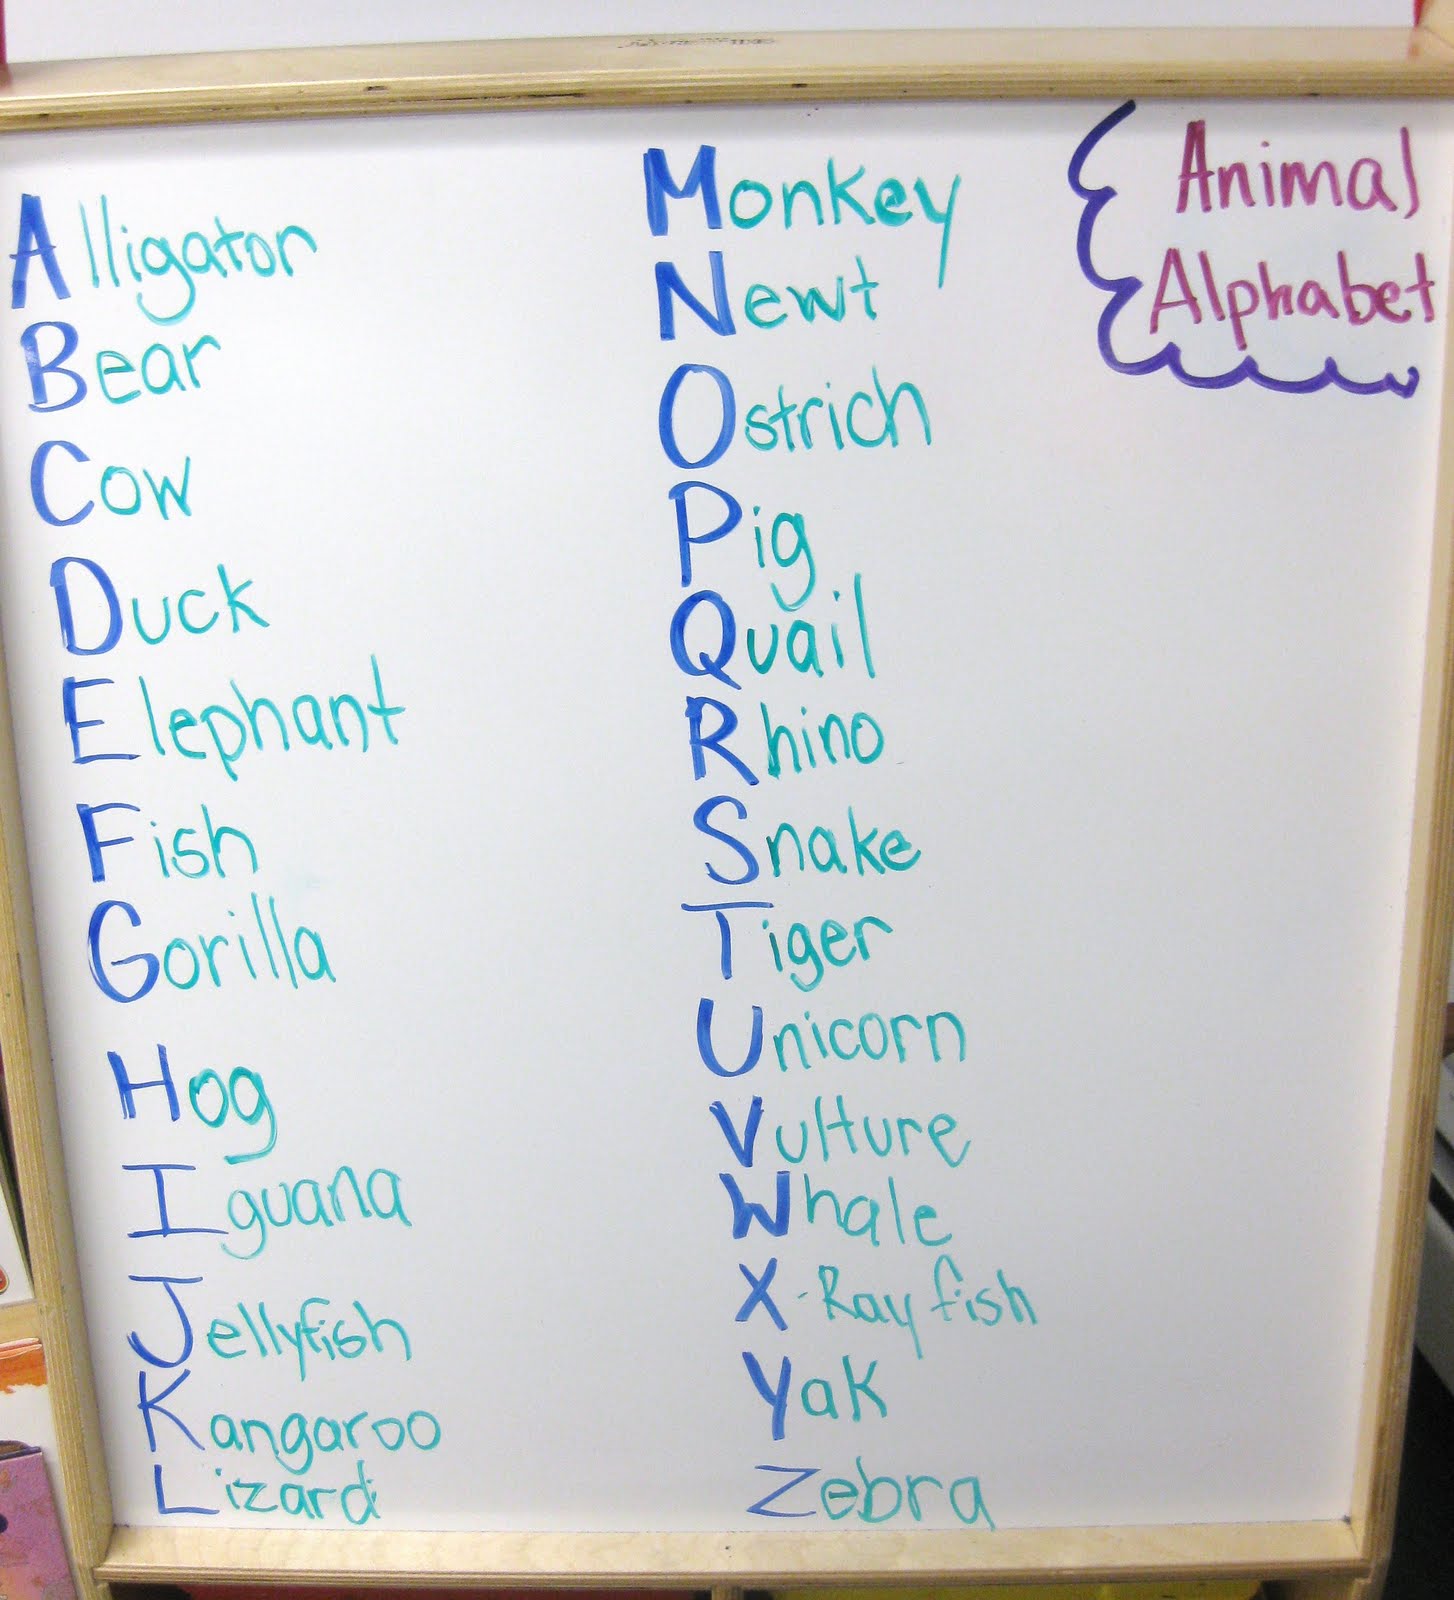 Animal
Alphabet
Alligator
Bear
Cow
Duck
Elephant
Fish
Gorilla
Hog
Iguana
Jellyfish
Kangaroo
Lizard
Monkey
Newt
Ostrich
Pig
Quail
Rhino
Snake
Tiger
Unicorn
Vulture
Whale
X-Ray fish
Yak
Zebra